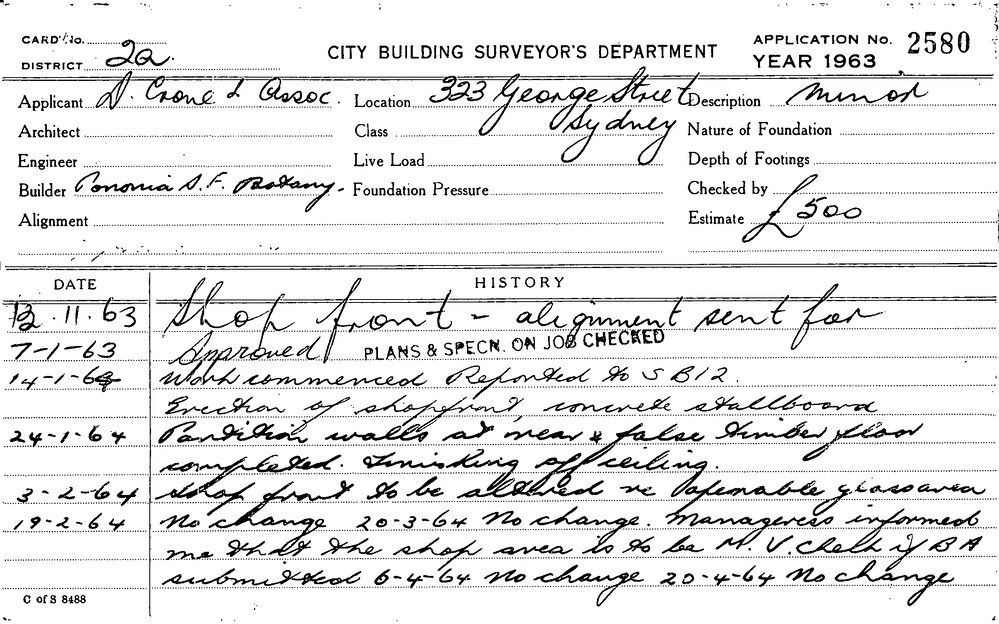 CARD No.
DISTRICT 2a.
CITY BUILDING SURVEYOR'S DEPARTMENT
APPLICATION No. 2580
YEAR 1963
Applicant D. Crone & Assoc. Location 323 George Street Description minor
Architect Class Sydney Nature of Foundation
Engineer Live Load Depth of Footings
Builder S.F. Botany. Foundation Pressure Checked by
Alignment Estimate £500
DATE HISTORY
12.11.63 Shop front - alignment sent for
7-1-63 Approved PLANS & SPECN. ON JOB CHECKED
14-1-64 Work commenced Reported to SB12.
Erection of shopfront, concrete stallboard
24-1-64 Partition walls at rear & false timber floor
completed. Finishing off ceiling.
3-2-64 Shop front to be altered re openable glass area
19-2-64 No change 20-3-64 No change. Manageress informed
me that the shop area is to be M.V. Check if BA
submitted 6-4-64 No change 20-4-64 No change
C of S 8488